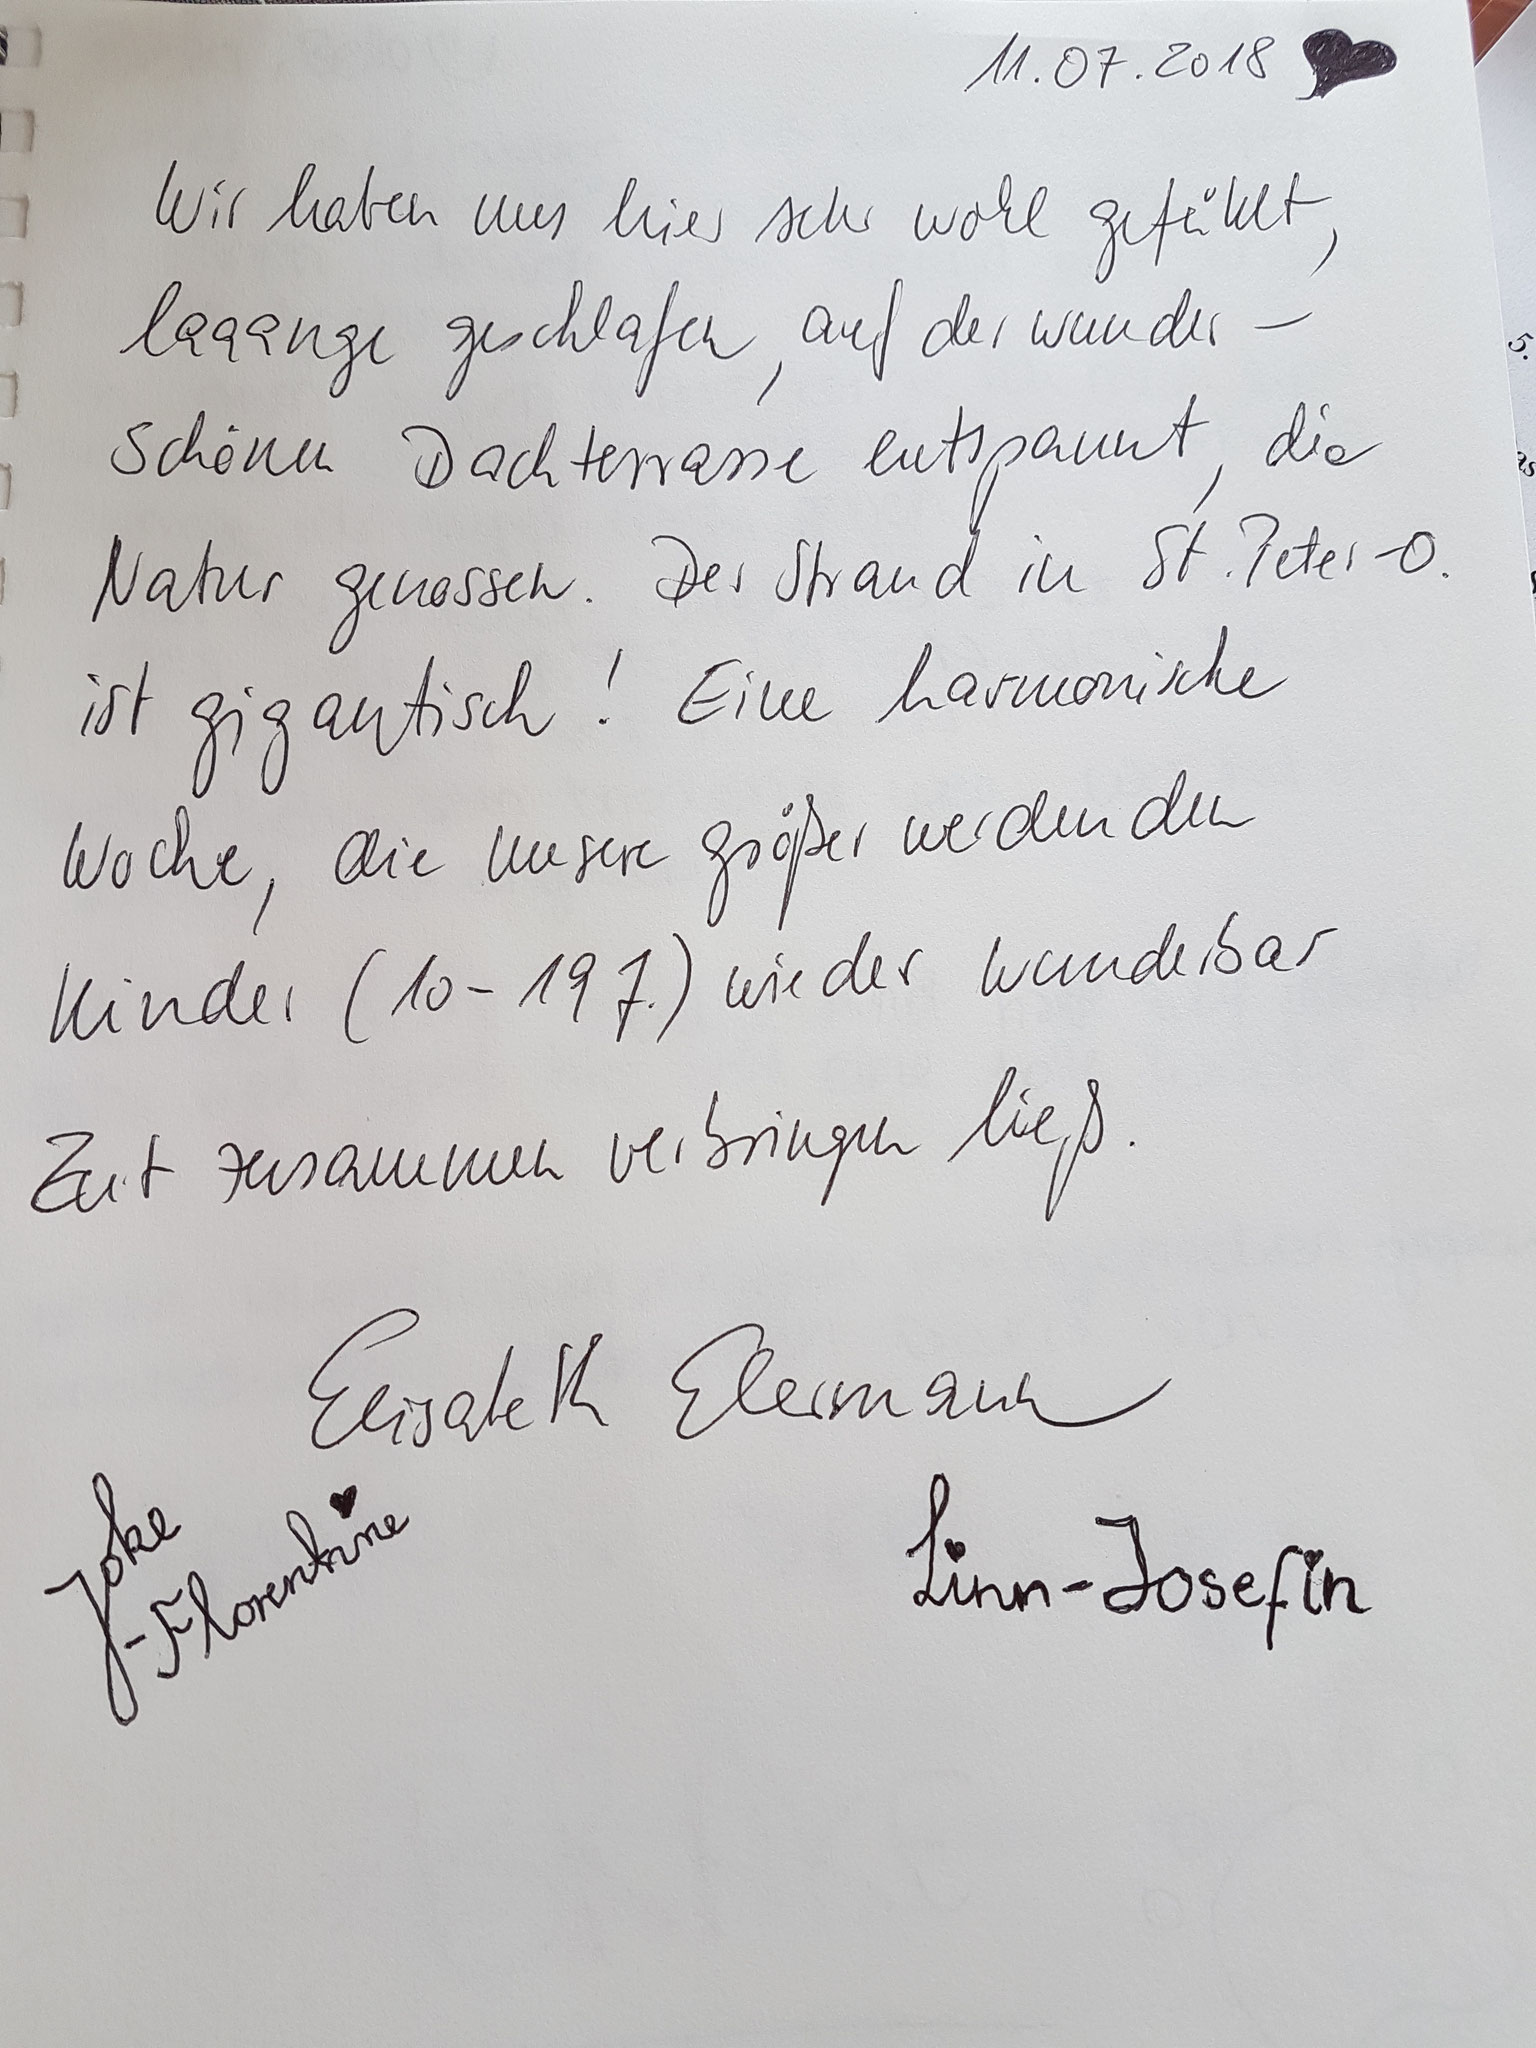 11.07.2018
Wir haben uns hier sehr wohl gefühlt,
laaange geschlafen, auf der wunder-
schönen Dachterrasse entspannt, die
Natur genossen. Der Strand in St. Peter-O.
ist gigantisch! Eine harmonische
Woche, die unsere größer werdenden
Kinder (10-19 J.) wieder wunderbar
Zeit zusammen verbringen ließ.
Elisabeth Elermann
Joke
-Florentine
Linn-Josefin
5.